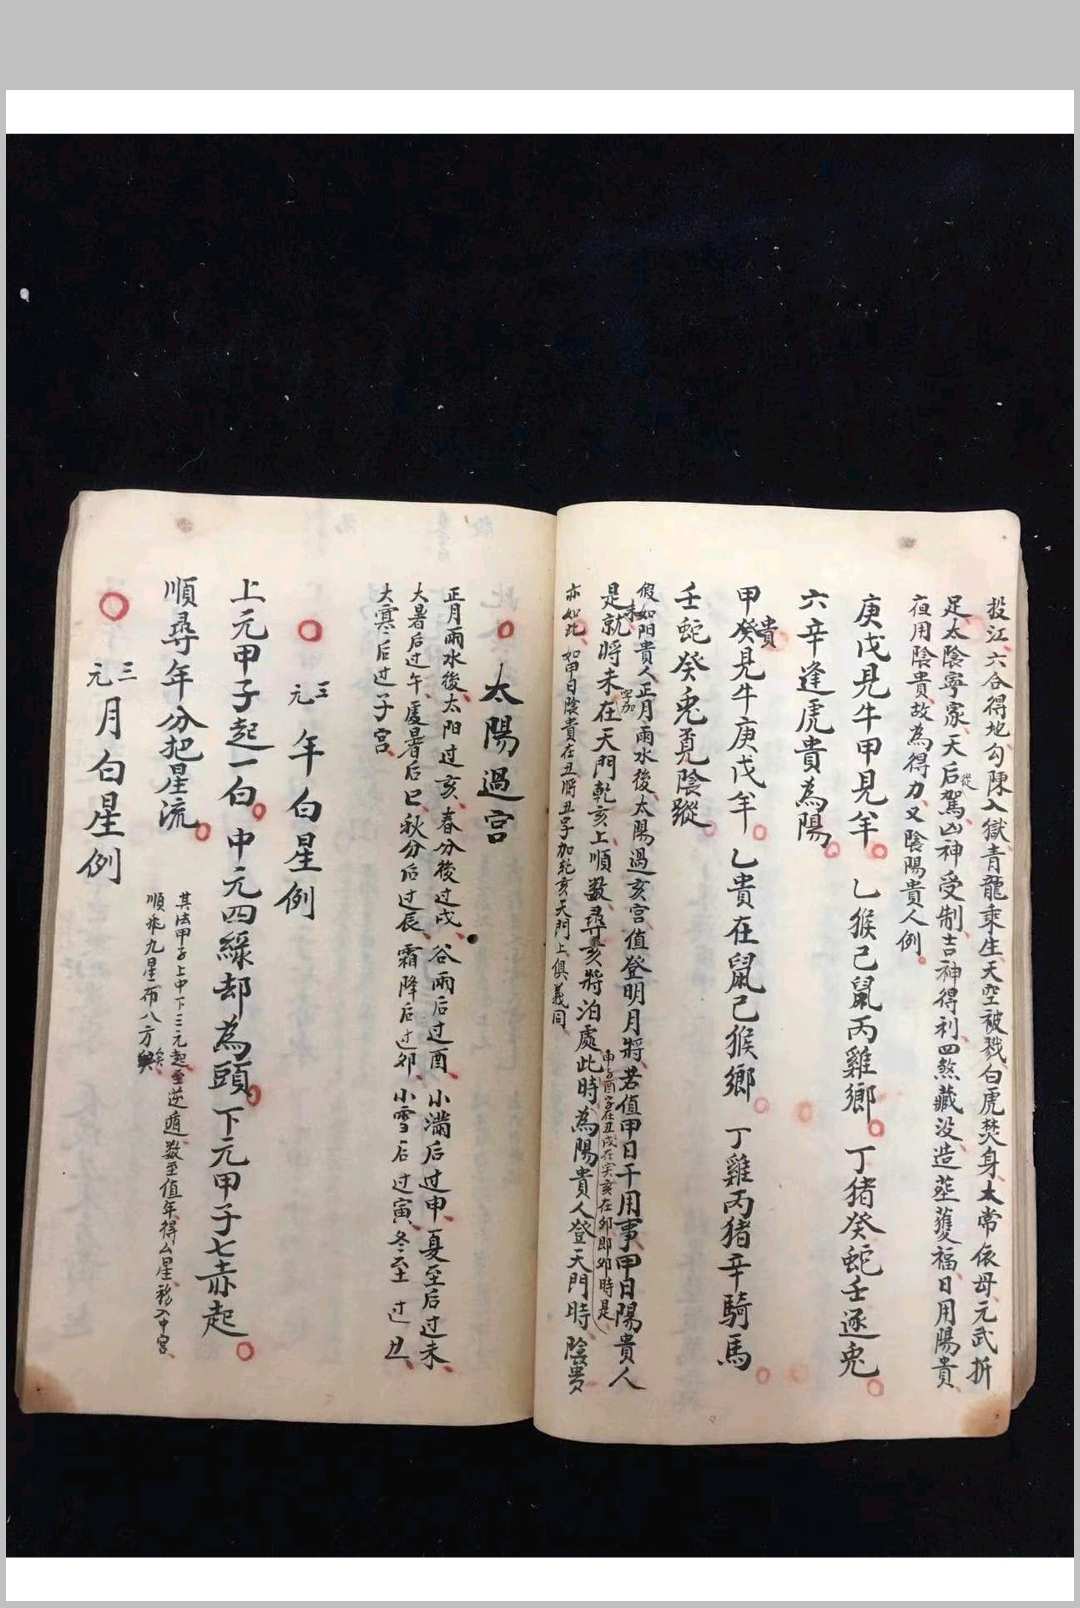 投江、六合得地、勾陳入獄、青龍乘生、天空被戮、白虎焚身、太常依母、元武折
足、太陰寧家、天后從駕、凶神受制、吉神得利、四煞藏没、造葬獲福、日用陽貴
夜用陰貴、故為得力、又陰陽貴人例。
庚戊見牛甲見羊。乙猴己鼠丙雞鄉。丁猪癸蛇壬逐兔
六辛逢虎貴為陽。
甲貴見牛庚戊羊。乙貴在鼠己猴鄉。丁雞丙猪辛騎馬
壬蛇癸兔覓陰蹤
假如陽貴人正月雨水後、太陽過亥宮值登明月將、若值甲日干用事、甲日陽貴人
是未、就將未字加在天門乾亥上順数、尋亥將泊處、此時為陽貴人登天門時、陰貴
申子酉字在丑戌在寅亥在卯即卯時是
亦如此、如甲日陰貴在丑、將丑字加乾亥天門上俱義同
太陽過宮
正月雨水後、太阳过亥、春分後过戌、谷雨后过酉、小滿后过申、夏至后过未、
大暑后过午、處暑后巳、秋分后过辰、霜降后过卯、小雪后过寅、冬至过丑、
大寒后过子宮、
三元年白星例
上元甲子起一白。中元四綠却為頭。下元甲子七赤起。
順尋年分把星流。
其法甲子上中下三元起、逆遁数至值年得厶星移入中宮、
順飛九星布八方
三元月白星例